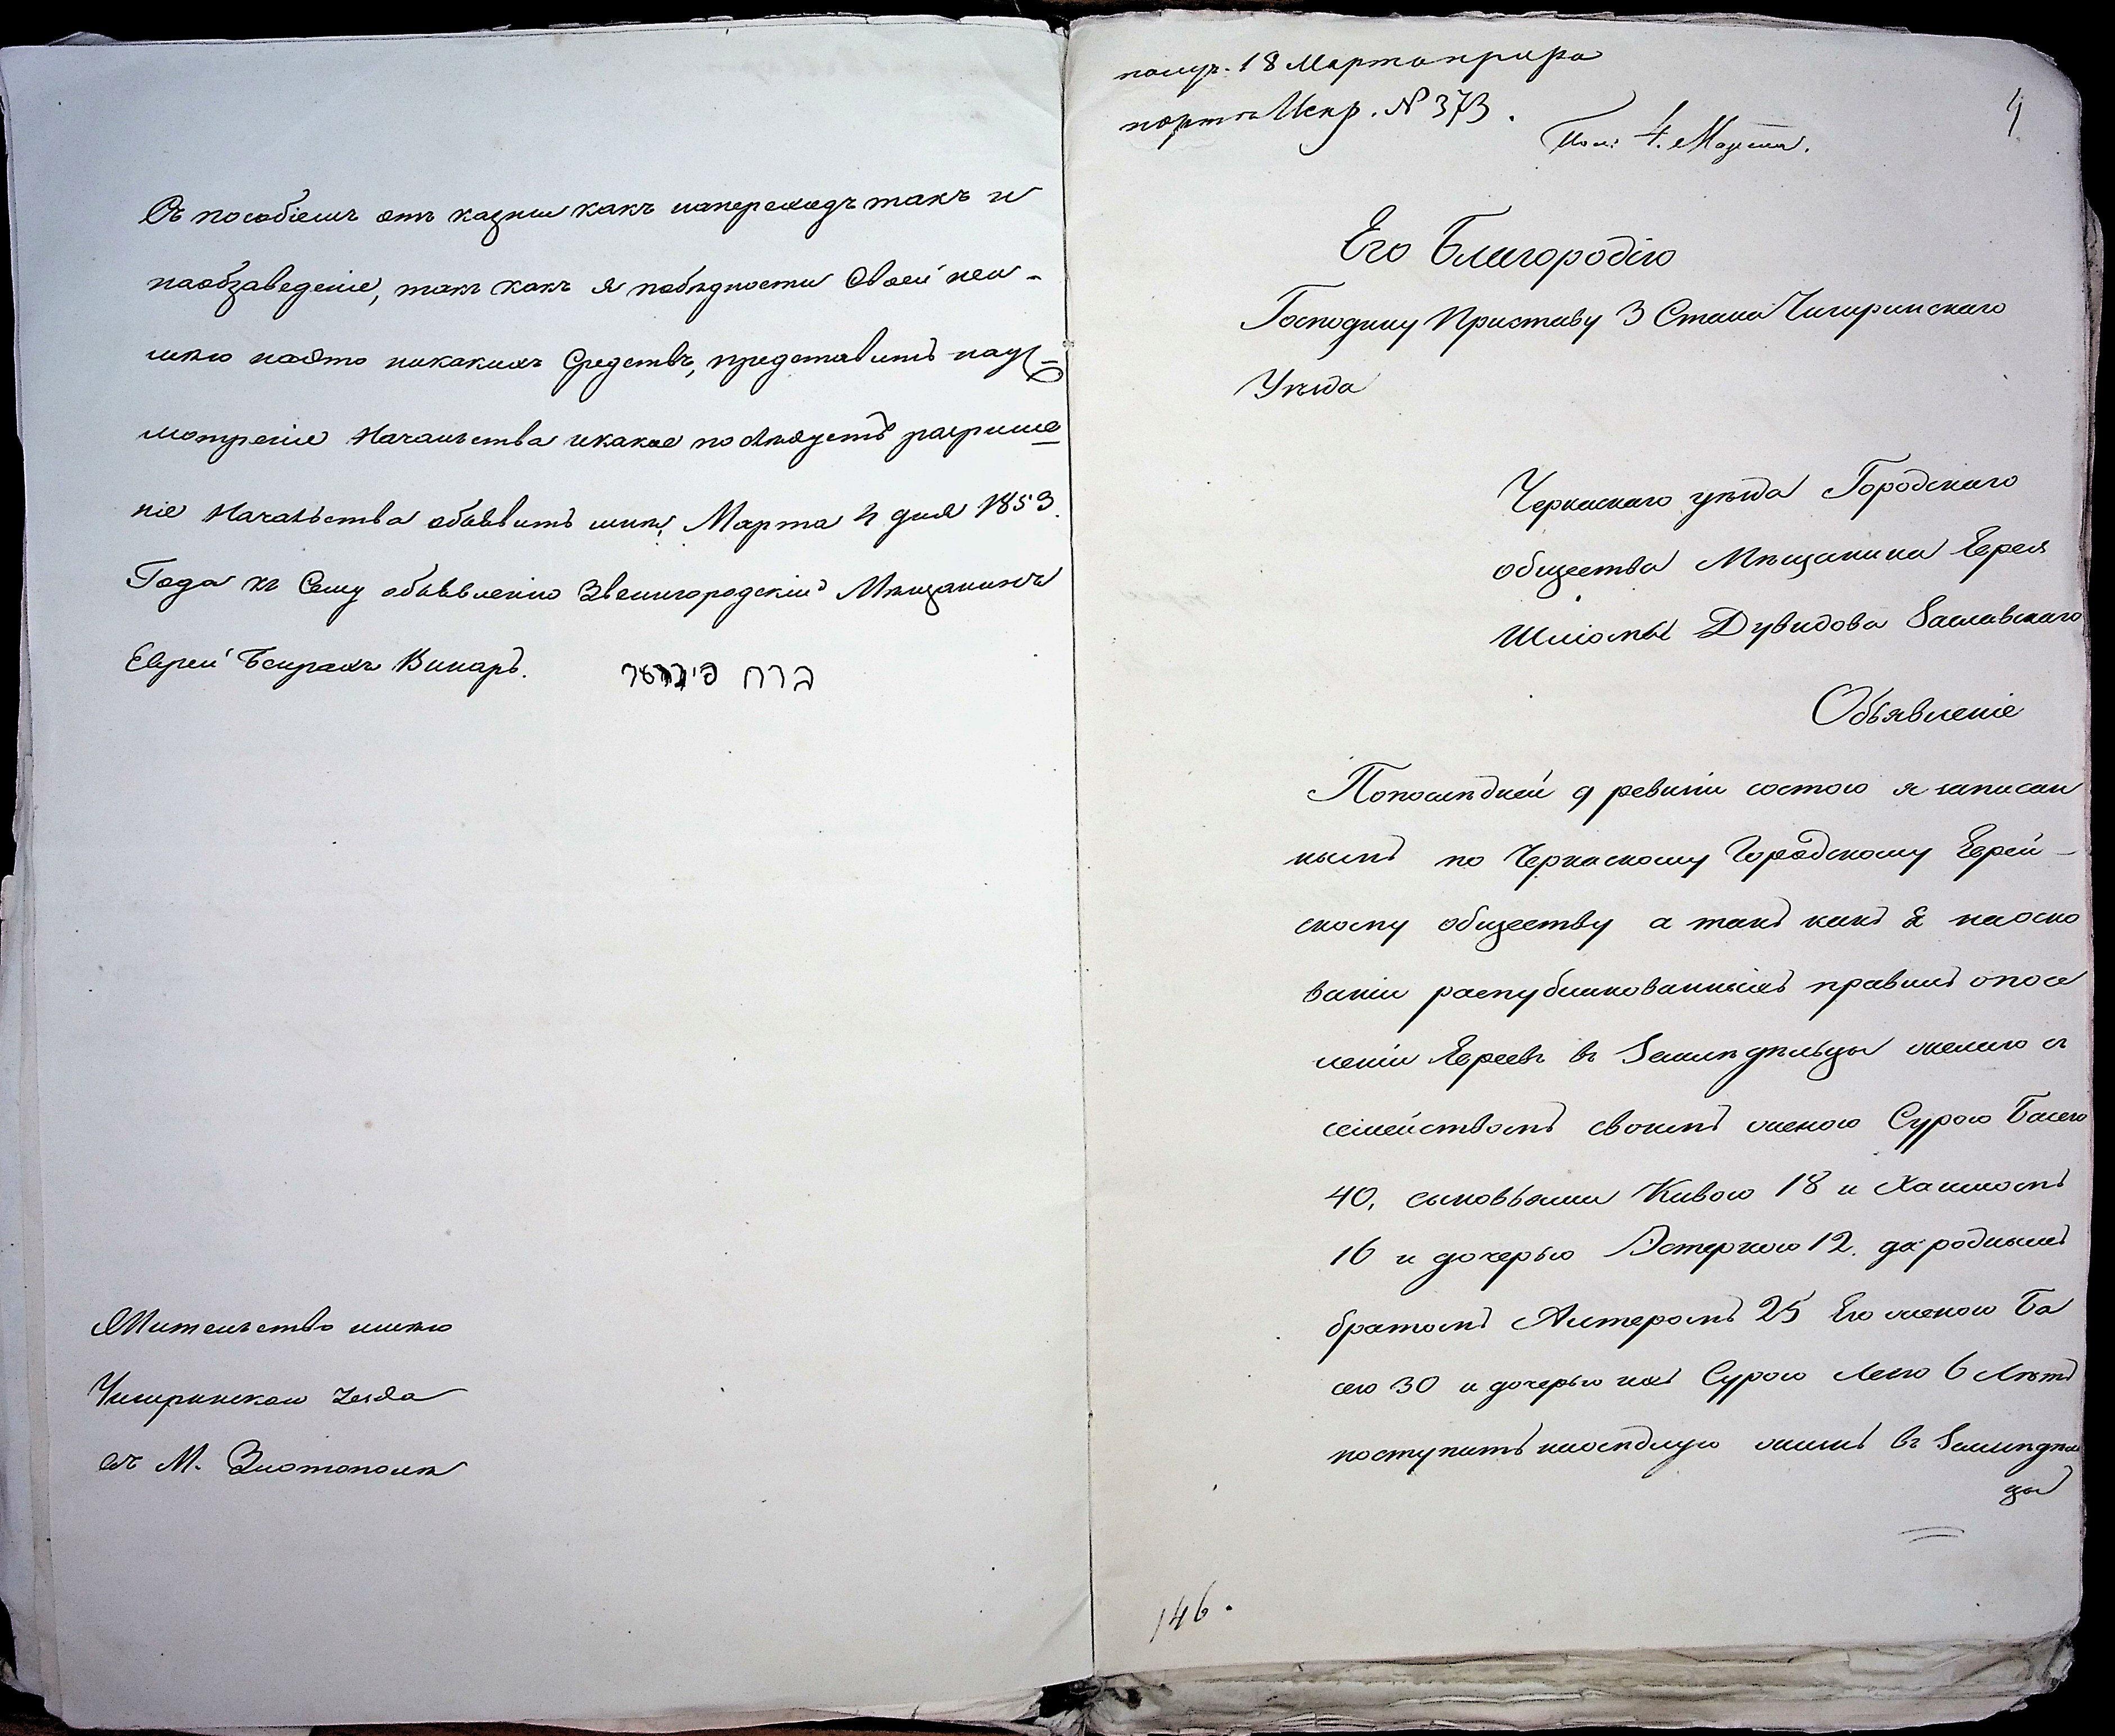 Съ пособіемъ отъ казны какъ напереходъ такъ и
наобзаведеніе, такъ какъ я побѣдности Своей неи-
мѣю наэто никакихъ Средствъ, представить наус-
мотреніе Начальства икакое последуетъ разреше
ніе Начальства объявить мнѣ, Марта 4 дня 1853.
Года къ Сему объявленію Звенигородскій Мѣщанинъ
Еврей Бенрахъ Винаръ.
ברח
Жительство имѣю
Чигиринскаго уезда
въ М. Златополѣ
получ. 18 Марта при ра
портѣ Испр. № 373.
Пол: 4. Марта.
4
Его Благородію
Господину Приставу 3 Стана Чигиринскаго
Уѣзда
Черкаскаго уѣзда Городскаго
общества Мѣщанина Еврея
Шліомы Дувидова Заславскаго
Объявленіе
Попослѣдней 9 ревизіи состою я записан
нымъ по Черкаскому Городскому Еврей-
скому обществу а такъ какъ я наосно
ваніи распубликованныхъ правилъ опосе
леніи Евреевъ въ Земледѣльцы желаю съ
семействомъ своимъ женою Сурою Басею
40, сыновьями Кивою 18 и Хаимомъ
16 и дочерью Эстеркою 12. да роднымъ
братомъ Алтеромъ 25 Его женою Ба
сею 30 и дочерью ихъ Сурою Леею 6 Лѣтъ
поступить наосѣдлую жизнь въ Земледѣль
цы
146.